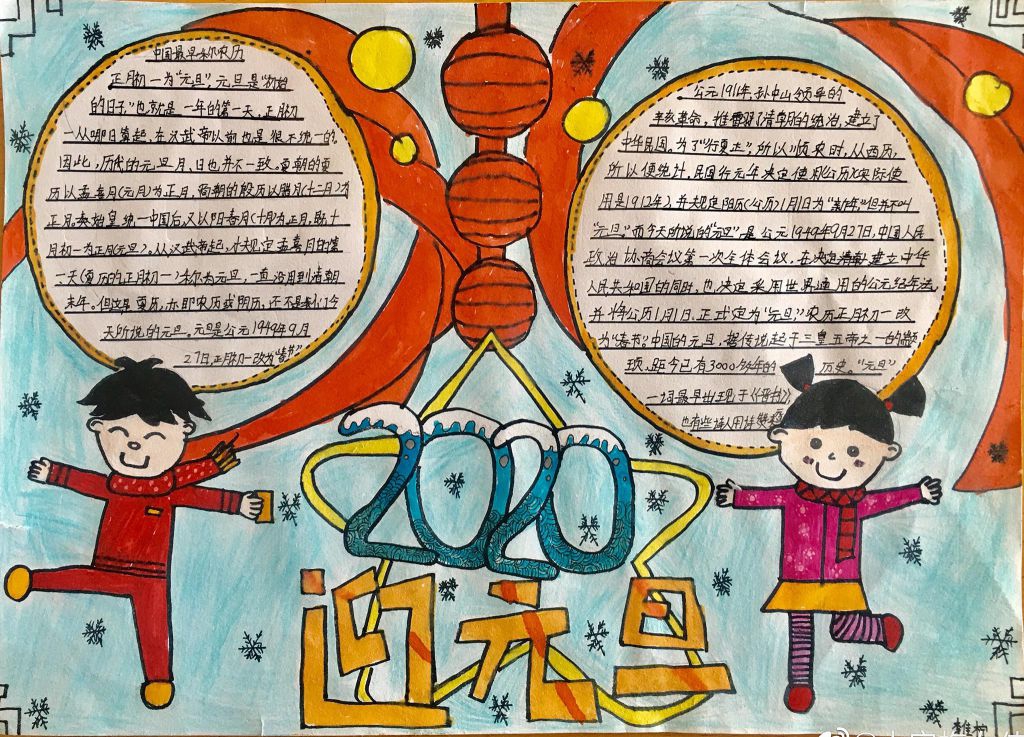 中国最早称农历
正月初一为“元旦”,元旦是“初始
的日子”也就是一年的第一天,正月初
一从哪日算起,在汉武帝以前也是很不统一的,
因此,历代的元旦月、日也并不一致。夏朝的夏
历以孟喜月(元月)为正月,商朝的殷历以腊月(十二月)为
正月。秦始皇统一中国后,又以阳春月(十月)为正月,即十
月初一为正月(元旦)。从汉武帝起,才规定孟喜月的第
一天(夏历的正月初一)称为元旦,一直沿用到清朝
末年。但这是夏历,亦即农历或阴历,还不是我们今
天所说的元旦。元旦是公元1949年9月
27日,正月初一改为“春节”
公元1911年,孙中山领导的
辛亥革命,推翻了清朝的统治,建立了
中华民国。为了“行夏正,所以顺农时,从西历,
所以便统计,民国行元年决定使用公历(实际使
用是1912年),并规定阳历(公历)1月1日为“新年”但并不叫
“元旦”而今天所说的“元旦”,是公元1949年9月27日,中国人民
政治协商会议第一次全体会议,在决定建立中华
人民共和国的同时,也决定采用世界通用的公元纪年法,
并将公历1月1日,正式定为“元旦”,农历正月初一改
为“春节”,中国的元旦,据传说起于三皇五帝之一的颛
顼,距今已有3000多年的历史。“元旦”
一词最早出现于《晋书》
也有些诗人用诗
2020
迎元旦